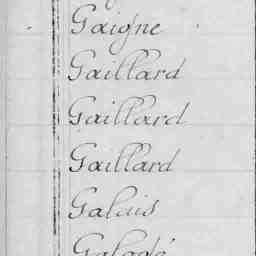 Gaigne
Gaillard
Gaillard
Gaillard
Galais
Galodé